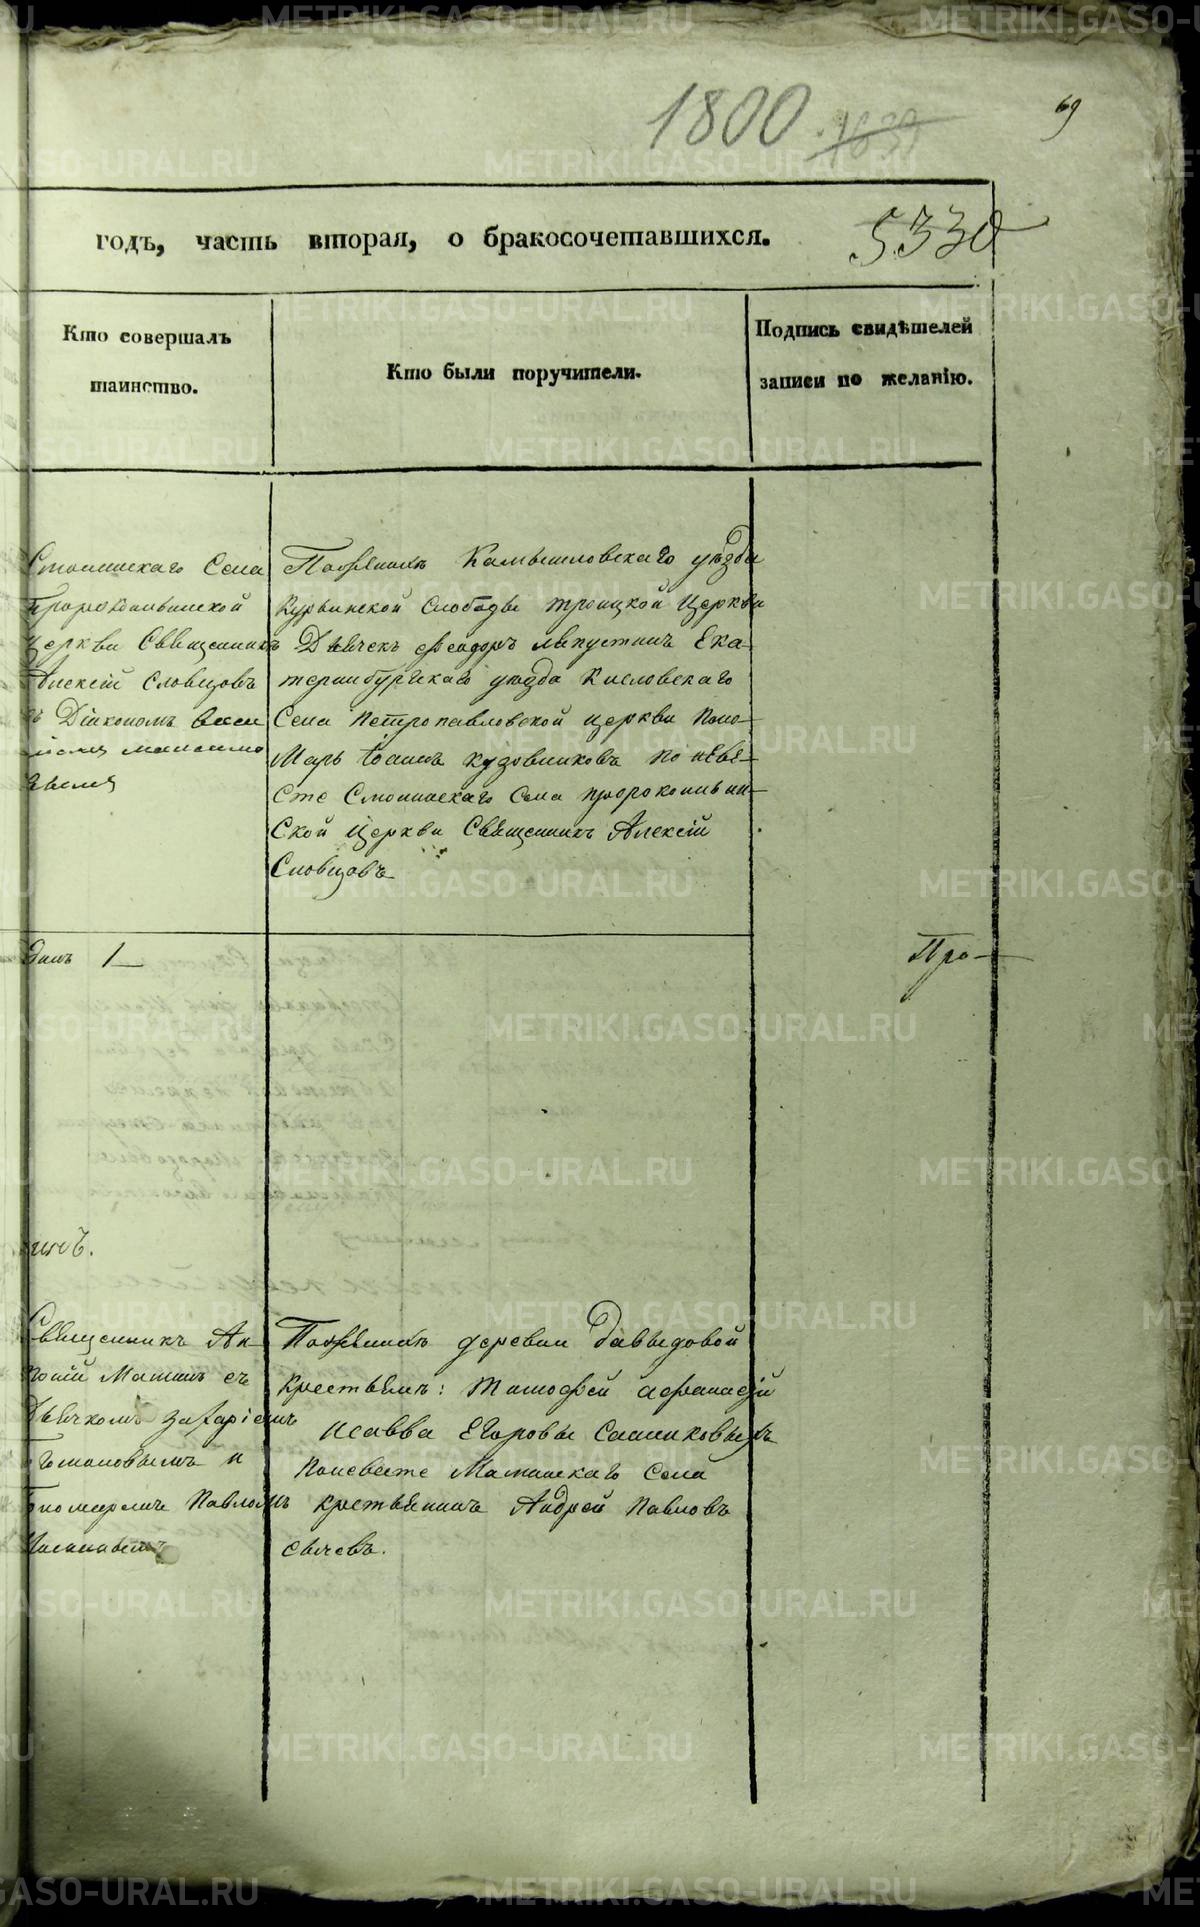 1800
69
годъ, часть вторая, о бракосочетавшихся.
5330
Кто совершалъ
таинство.
Кто были поручители.
Подпись свидѣтелей
записи по желанію.
Смолинскаго Села
Пророкоильинской
Церкви Священникъ
Алексій Словцовъ
съ Діакономъ
По женихѣ Камышловскаго уѣзда
Курьинской слободы троицкой Церкви
Дьячекъ Феодоръ Ека-
теринбургскаго уѣзда Кисловскаго
Села Петропавловской церкви Поно-
марь Іоаннъ Кузовниковъ по невѣ-
сте Смолинскаго Села пророкоильин-
ской Церкви Священникъ Алексій
Словцовъ
динъ 1
Про-
Священникъ
съ
Дьячкомъ Захаріемъ
и
Пономаремъ Павломъ
По женихѣ деревни Давыдовой
крестьяне: Тимофей Афанасій
и савва Егоровы
По невесте Маминскаго Села
крестьянинъ Андрей Павловъ
Сычевъ.
METRIKI.GASO-URAL.RU